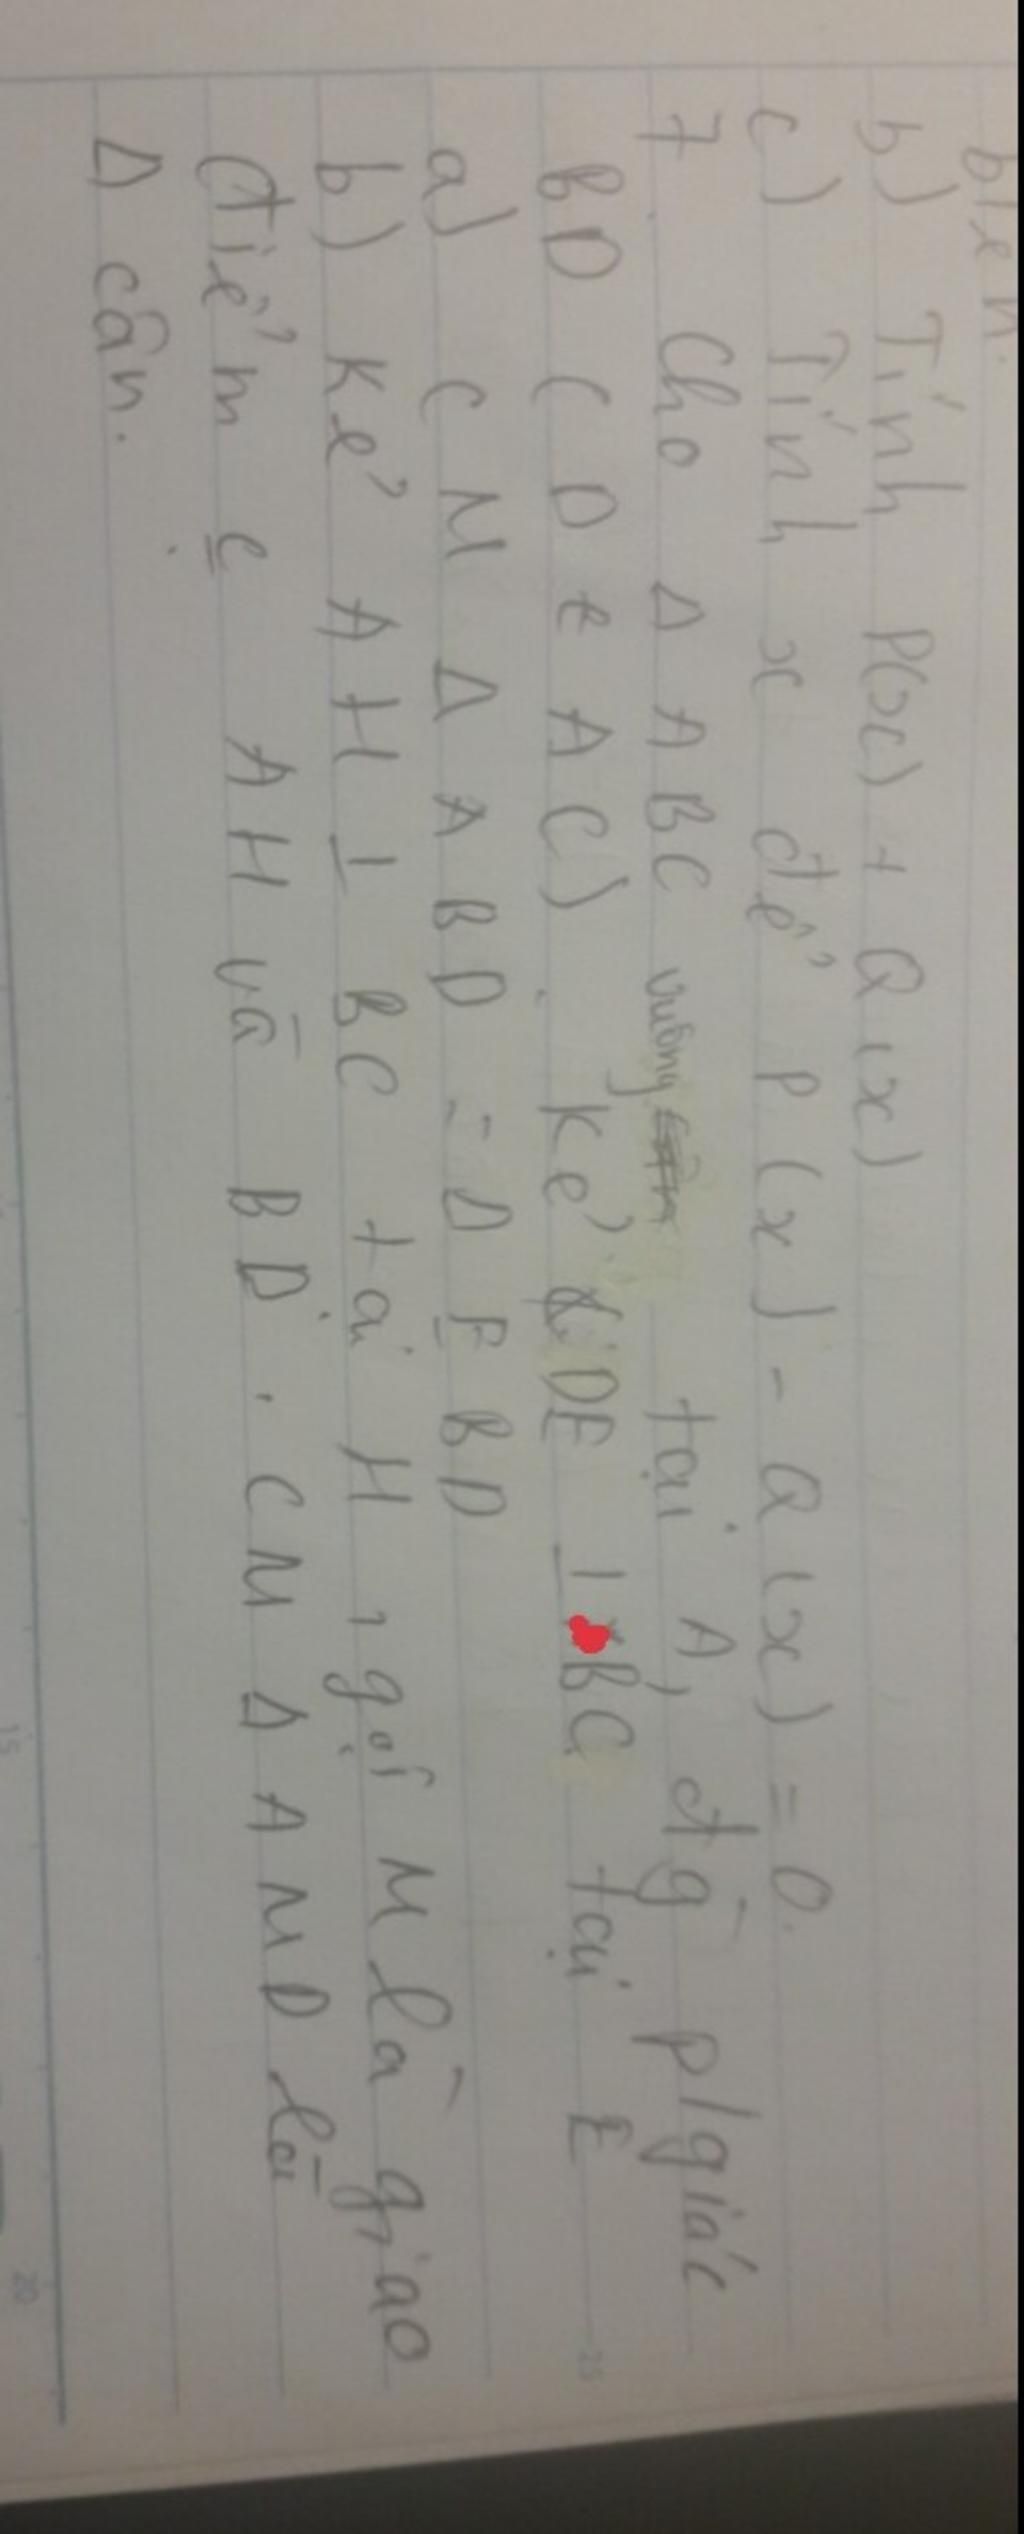 biến.
b) Tính P(x) + Q(x)
c) Tính x để P(x) - Q(x) = 0.
7 Cho Δ ABC vuông tại A, đg p/giác
BD (D ∈ AC). Kẻ DE ⊥ BC tại E
a) CM Δ ABD = Δ EBD
b) Kẻ AH ⊥ BC tại H, gọi M là giao
điểm c̲ AH và BD. CM Δ AMD là
Δ cân.
15
20
25